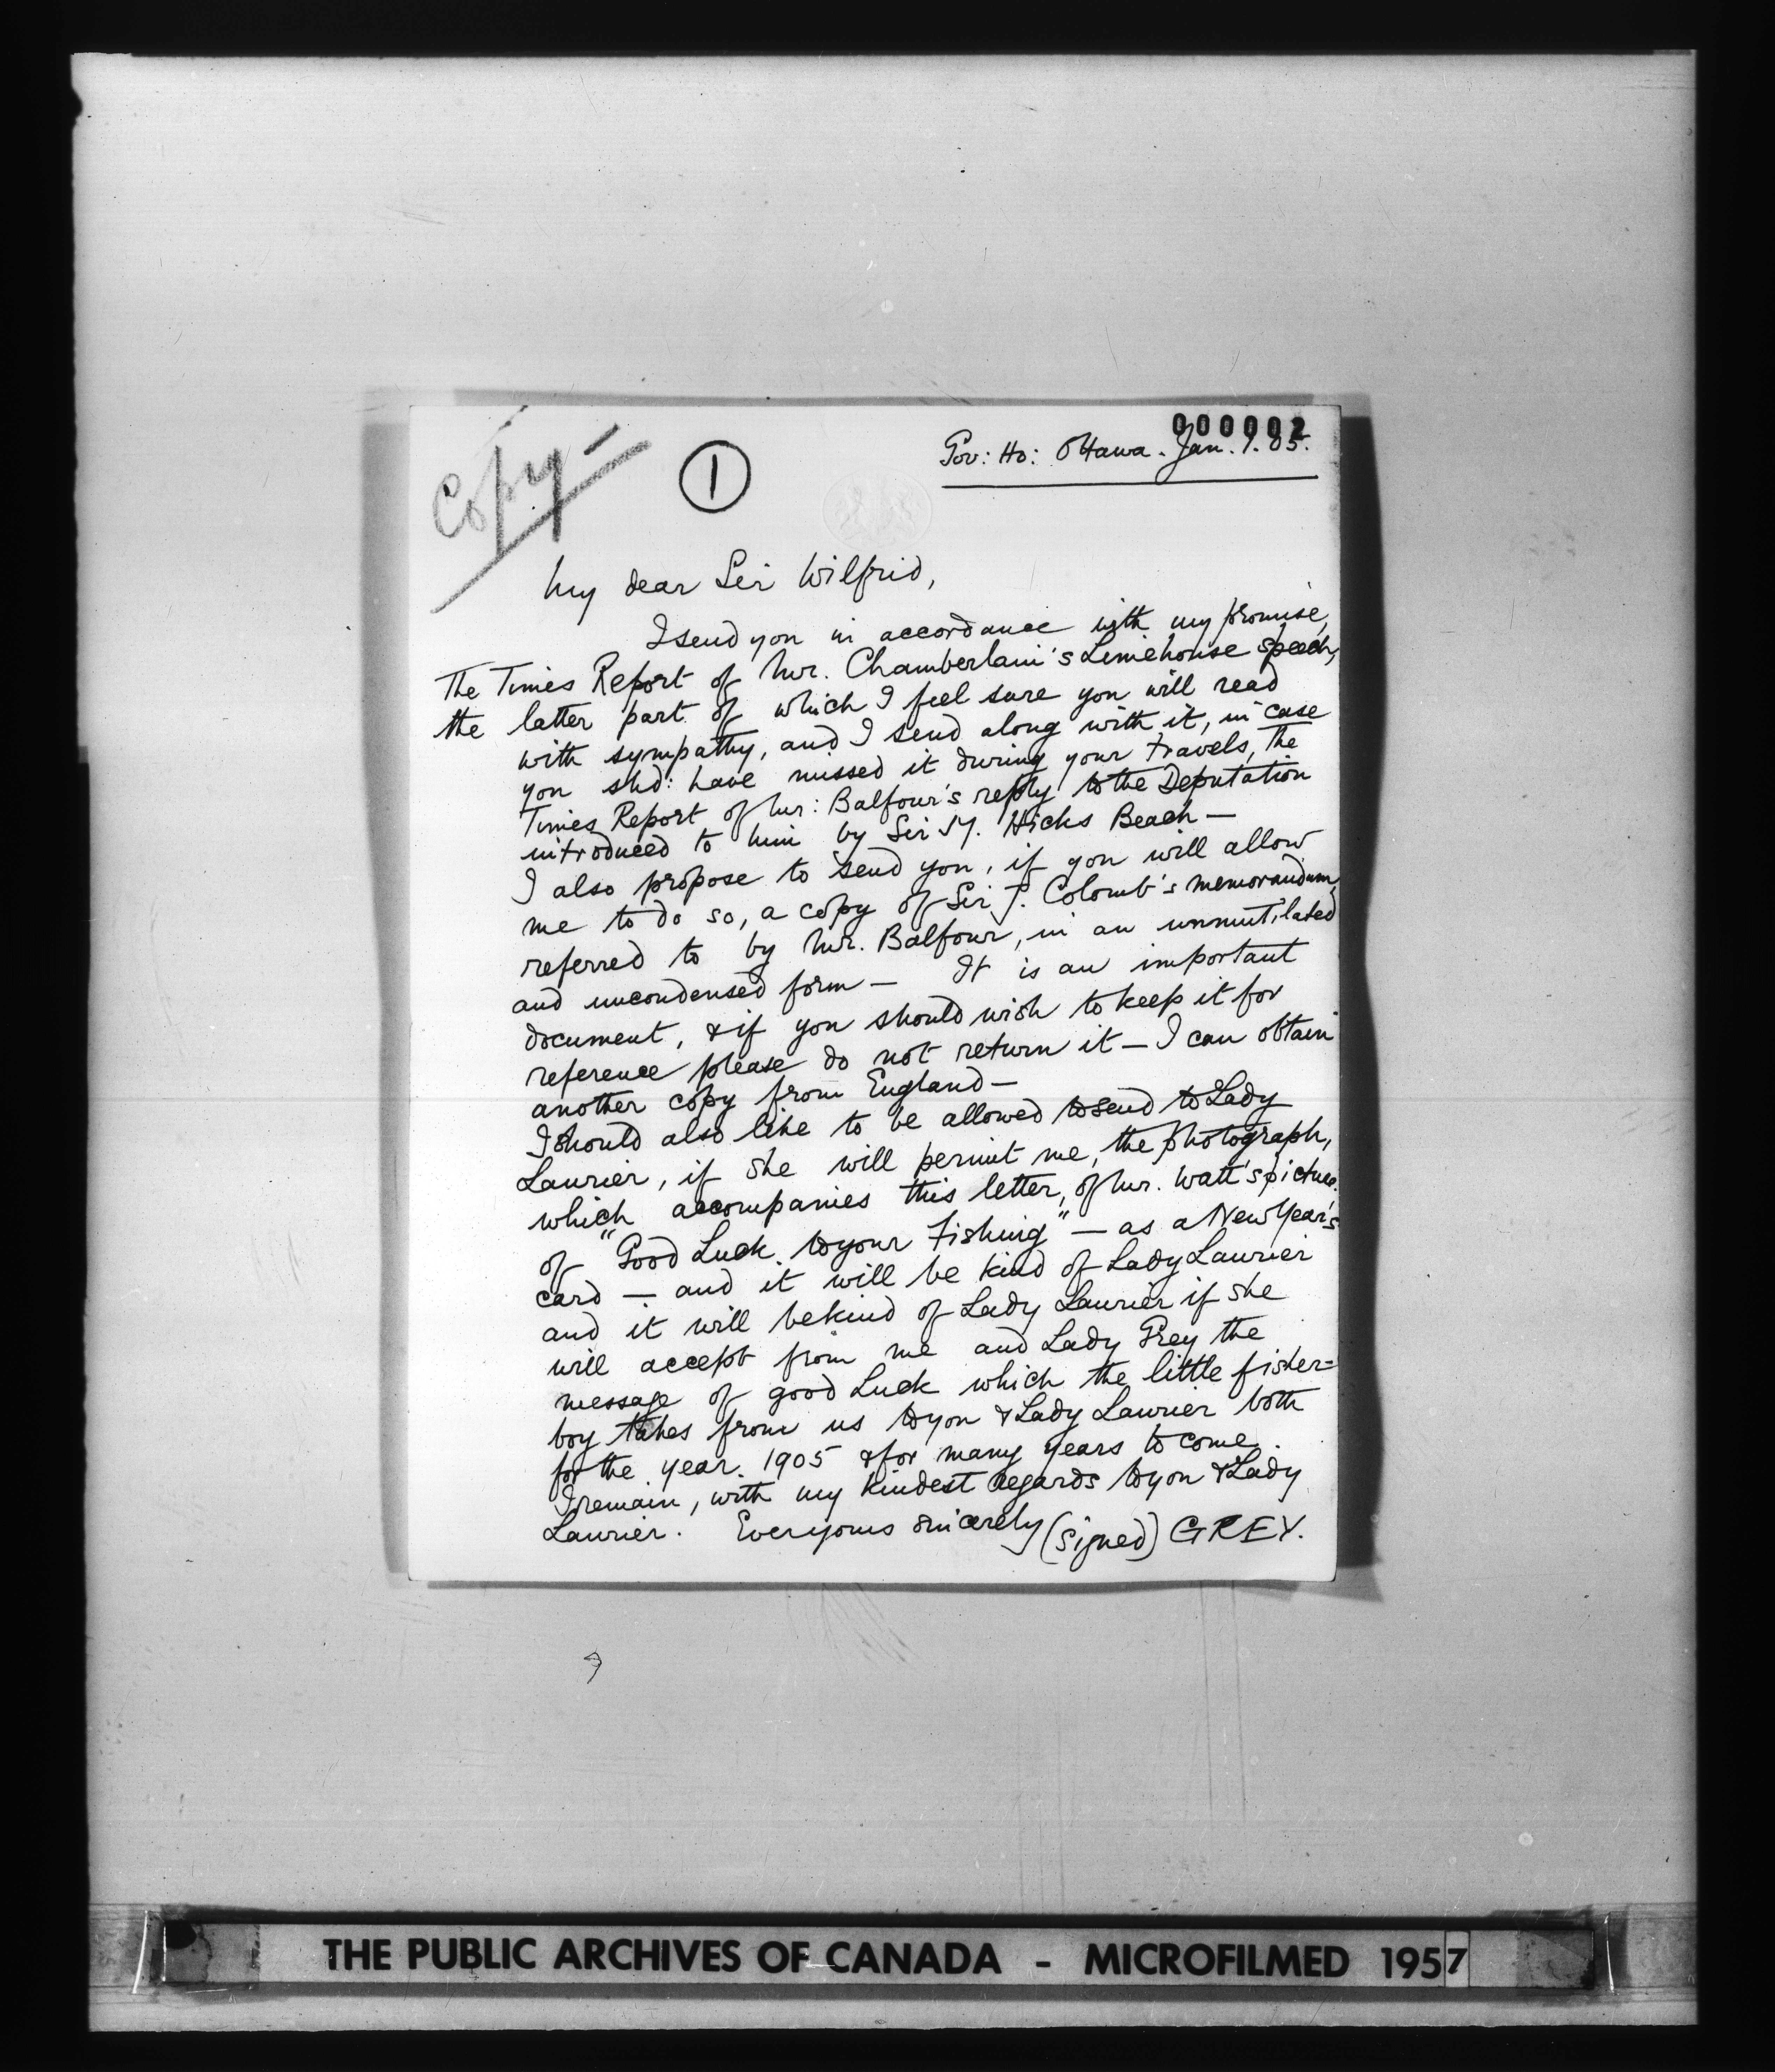 000002
Copy-
1
Gov: Ho: Ottawa. Jan. 1. 05.
My dear Sir Wilfrid,
I send you in accordance with my promise,
The Times Report of Mr. Chamberlain's Limehouse speech,
the latter part of which I feel sure you will read
with sympathy, and I send along with it, in case
you shd: have missed it during your travels, the
Times Report of Mr: Balfour's reply to the Deputation
introduced to him by Sir M. Hicks Beach —
I also propose to send you, if you will allow
me to do so, a copy of Sir J. Colomb's memorandum,
referred to by Mr. Balfour, in an unmutilated
and uncondensed form — It is an important
document, & if you should wish to keep it for
reference please do not return it — I can obtain
another copy from England —
I should also like to be allowed to send to Lady
Laurier, if she will permit me, the photograph,
which accompanies this letter, of Mr. Watt's picture
of "Good Luck to your Fishing" — as a New Year's
card — and it will be kind of Lady Laurier
and it will be kind of Lady Laurier if she
will accept from me and Lady Grey the
message of good Luck which the little fisher=
boy takes from us to you & Lady Laurier both
for the year. 1905 & for many years to come.
I remain, with my kindest regards to you & Lady
Laurier. Ever yours sincerely (Signed) GREY.
THE PUBLIC ARCHIVES OF CANADA - MICROFILMED 1957